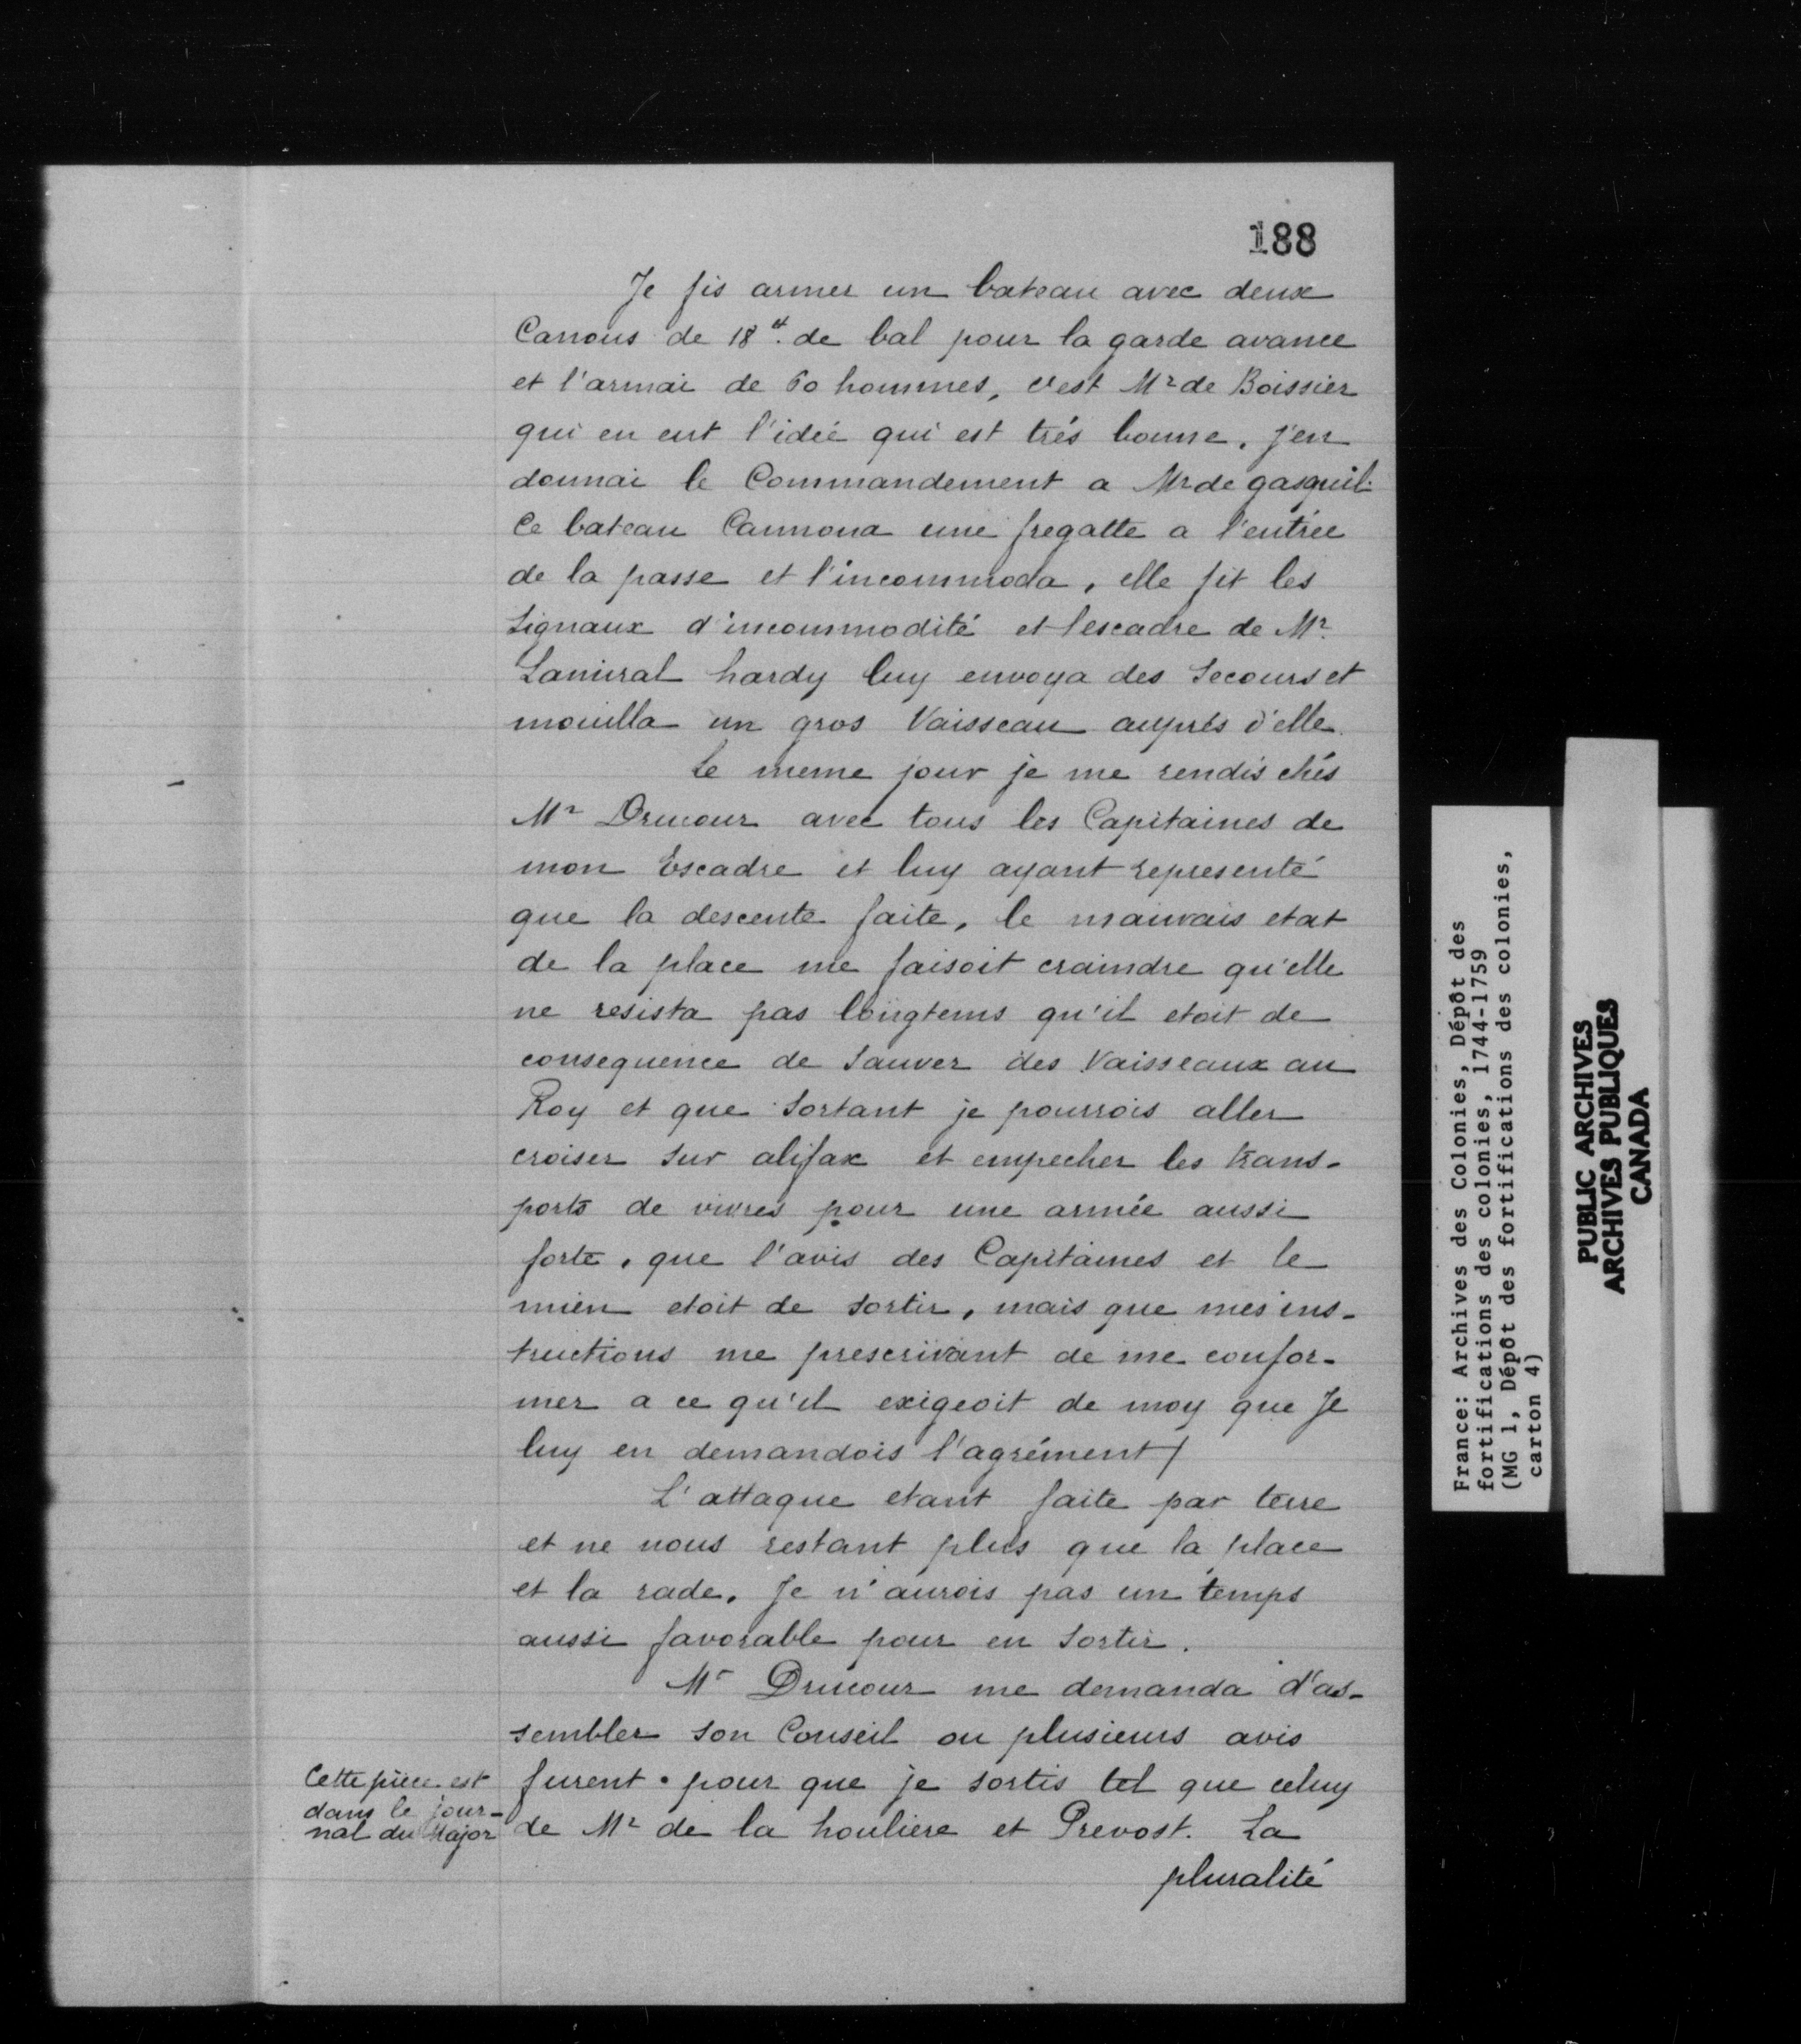 188
Je fis armer un bateau avec deux
Canons de 18 tt. de bal pour la garde avance
et l'armai de 60 hommes, c'est Mr de Boissier
qui en eut l'idée qui est trés bonne. j'en
donnai le Commandement a Mr de gasquil.
Ce bateau Cannona une fregatte a l'entrée
de la passe et l'incommoda, elle fit les
Signaux d'incommodité et lescadre de Mr.
Lamiral hardy luy envoya des Secours et
mouilla un gros Vaisseau auprés d'elle.
Le meme jour je me rendis chés
Mr Drucour avec tous les Capitaines de
mon Escadre et luy ayant representé
que la descente faite, le mauvais etat
de la place me faisoit craindre qu'elle
ne resista pas longtems qu'il etoit de
consequence de Sauver des Vaisseaux au
Roy et que Sortant je pourrois aller
croiser Sur alifax et empecher les trans-
ports de vivres pour une armée aussi
forte, que l'avis des Capitaines et le
mien etoit de Sortir, mais que mes ins-
tructions me prescrivant de me confor-
mer a ce qu'il exigeoit de moy que Je
luy en demandois l'agrément /
L'attaque etant faite par terre
et ne nous restant plus que la place
et la rade. Je n'aurois pas un temps
aussi favorable pour en Sortir.
Mr Drucour me demanda d'as-
sembler Son Conseil ou plusieurs avis
furent pour que je sortis tel que celuy
de Mr de la houliere et Prevost. La
pluralité
Cette pièce est
dans le jour-
nal du Major
France: Archives des Colonies, Dépôt des
fortifications des colonies, 1744-1759
(MG 1, Dépôt des fortifications des colonies,
carton 4)
PUBLIC ARCHIVES
ARCHIVES PUBLIQUES
CANADA